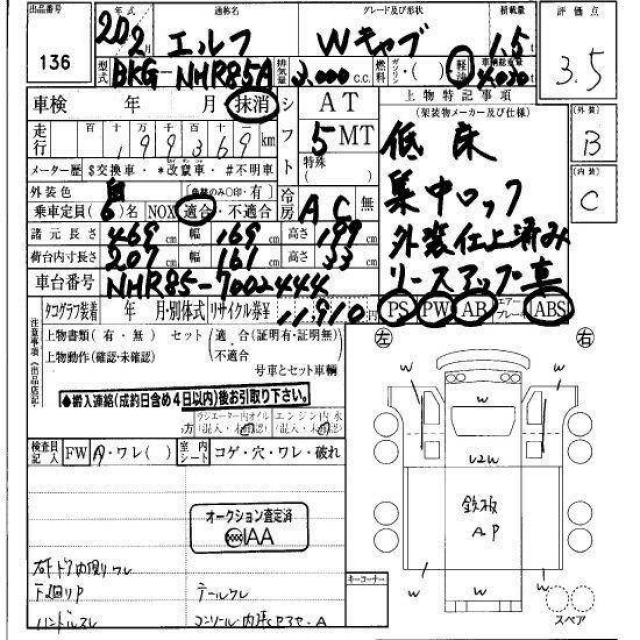 出品番号 年式 通称名 グレード及び形状 積載量 評価点
136 20 2月 エルフ Wキャブ 1.5t 3.5
型式 BKG-NHR85A 排気量 3,000c.c. 燃料 ガソリン・( )・軽油 車輌総重量 4,030t
車検 年 月 抹消 シフト AT 上物特記事項
走行 百十万千百十 199369km 5MT (架装物メーカー及び仕様) (外装) B
メーター歴 $交換車・*改竄車・#不明車 特殊( ) 低床 (内装) C
外装色 白 ・有) 冷房 AC 無 集中ロック
乗車定員(6)名 NOX適合・不適合 外装仕上済み
諸元長さ 469cm 幅 169cm 高さ 199cm リースアップ車
荷台内寸長さ 207cm 幅 161cm 高さ 33cm
車台番号 NHR85-7002444
タコグラフ装着 年 月・別体式 リサイクル券¥ 11,910円 PS PW AB エアーブレーキ ABS
注意事項(出品店記)
上物書類(有・無) セット(適合(証明有・証明無) 左 右
上物動作(確認・未確認) ・不適合
号車とセット車輌
●搬入連絡(成約日含め4日以内)後お引取り下さい。
ラジエーター内オイル エンジン内水
方(混入・未確認) (混入・未確認)
検査員記入 FW A・ワレ( ) 室内シート コゲ・穴・ワレ・破れ
オークション査定済
IAA
テールワレ
W W W W
U2W
鉄板
AP
W W W
キーコーナー
スペア